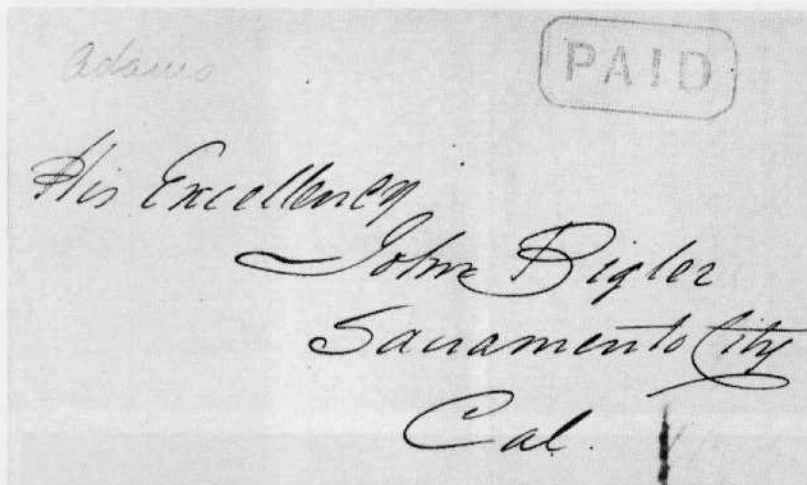 Adams
PAID
His Excellency
John Bigler
Sacramento City
Cal.